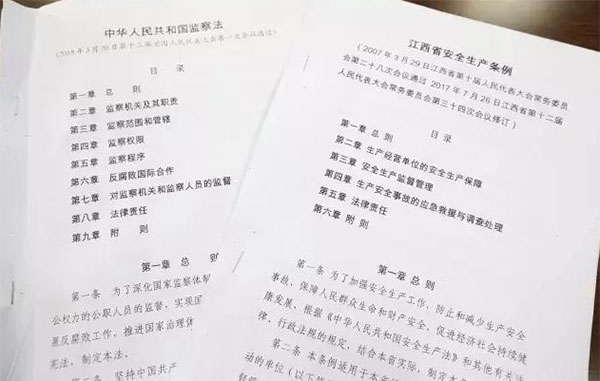 中华人民共和国监察法
(2018年3月20日第十三届全国人民代表大会第一次会议通过)
目 录
第一章 总 则
第二章 监察机关及其职责
第三章 监察范围和管辖
第四章 监察权限
第五章 监察程序
第六章 反腐败国际合作
第七章 对监察机关和监察人员的监督
第八章 法律责任
第九章 附 则
第一章 总 则
第一条 为了深化国家监察体制
公权力的公职人员的监督，实现国
展反腐败工作，推进国家治理体
宪法，制定本法。
第二条 坚持中国共产
江西省安全生产条例
(2007年3月29日江西省第十届人民代表大会常务委员
会第二十八次会议通过 2017年7月26日江西省第十二届
人民代表大会常务委员会第三十四次会议修订)
目 录
第一章 总 则
第二章 生产经营单位的安全生产保障
第三章 安全生产监督管理
第四章 生产安全事故的应急救援与调查处理
第五章 法律责任
第六章 附 则
第一章 总 则
第一条 为了加强安全生产工作，防止和减少生产安全
事故，保障人民群众生命和财产安全，促进经济社会持续健
康发展，根据《中华人民共和国安全生产法》和其他有关法
律、行政法规的规定，结合本省实际，制定本
第二条 本条例适用于本省
动的单位(以下